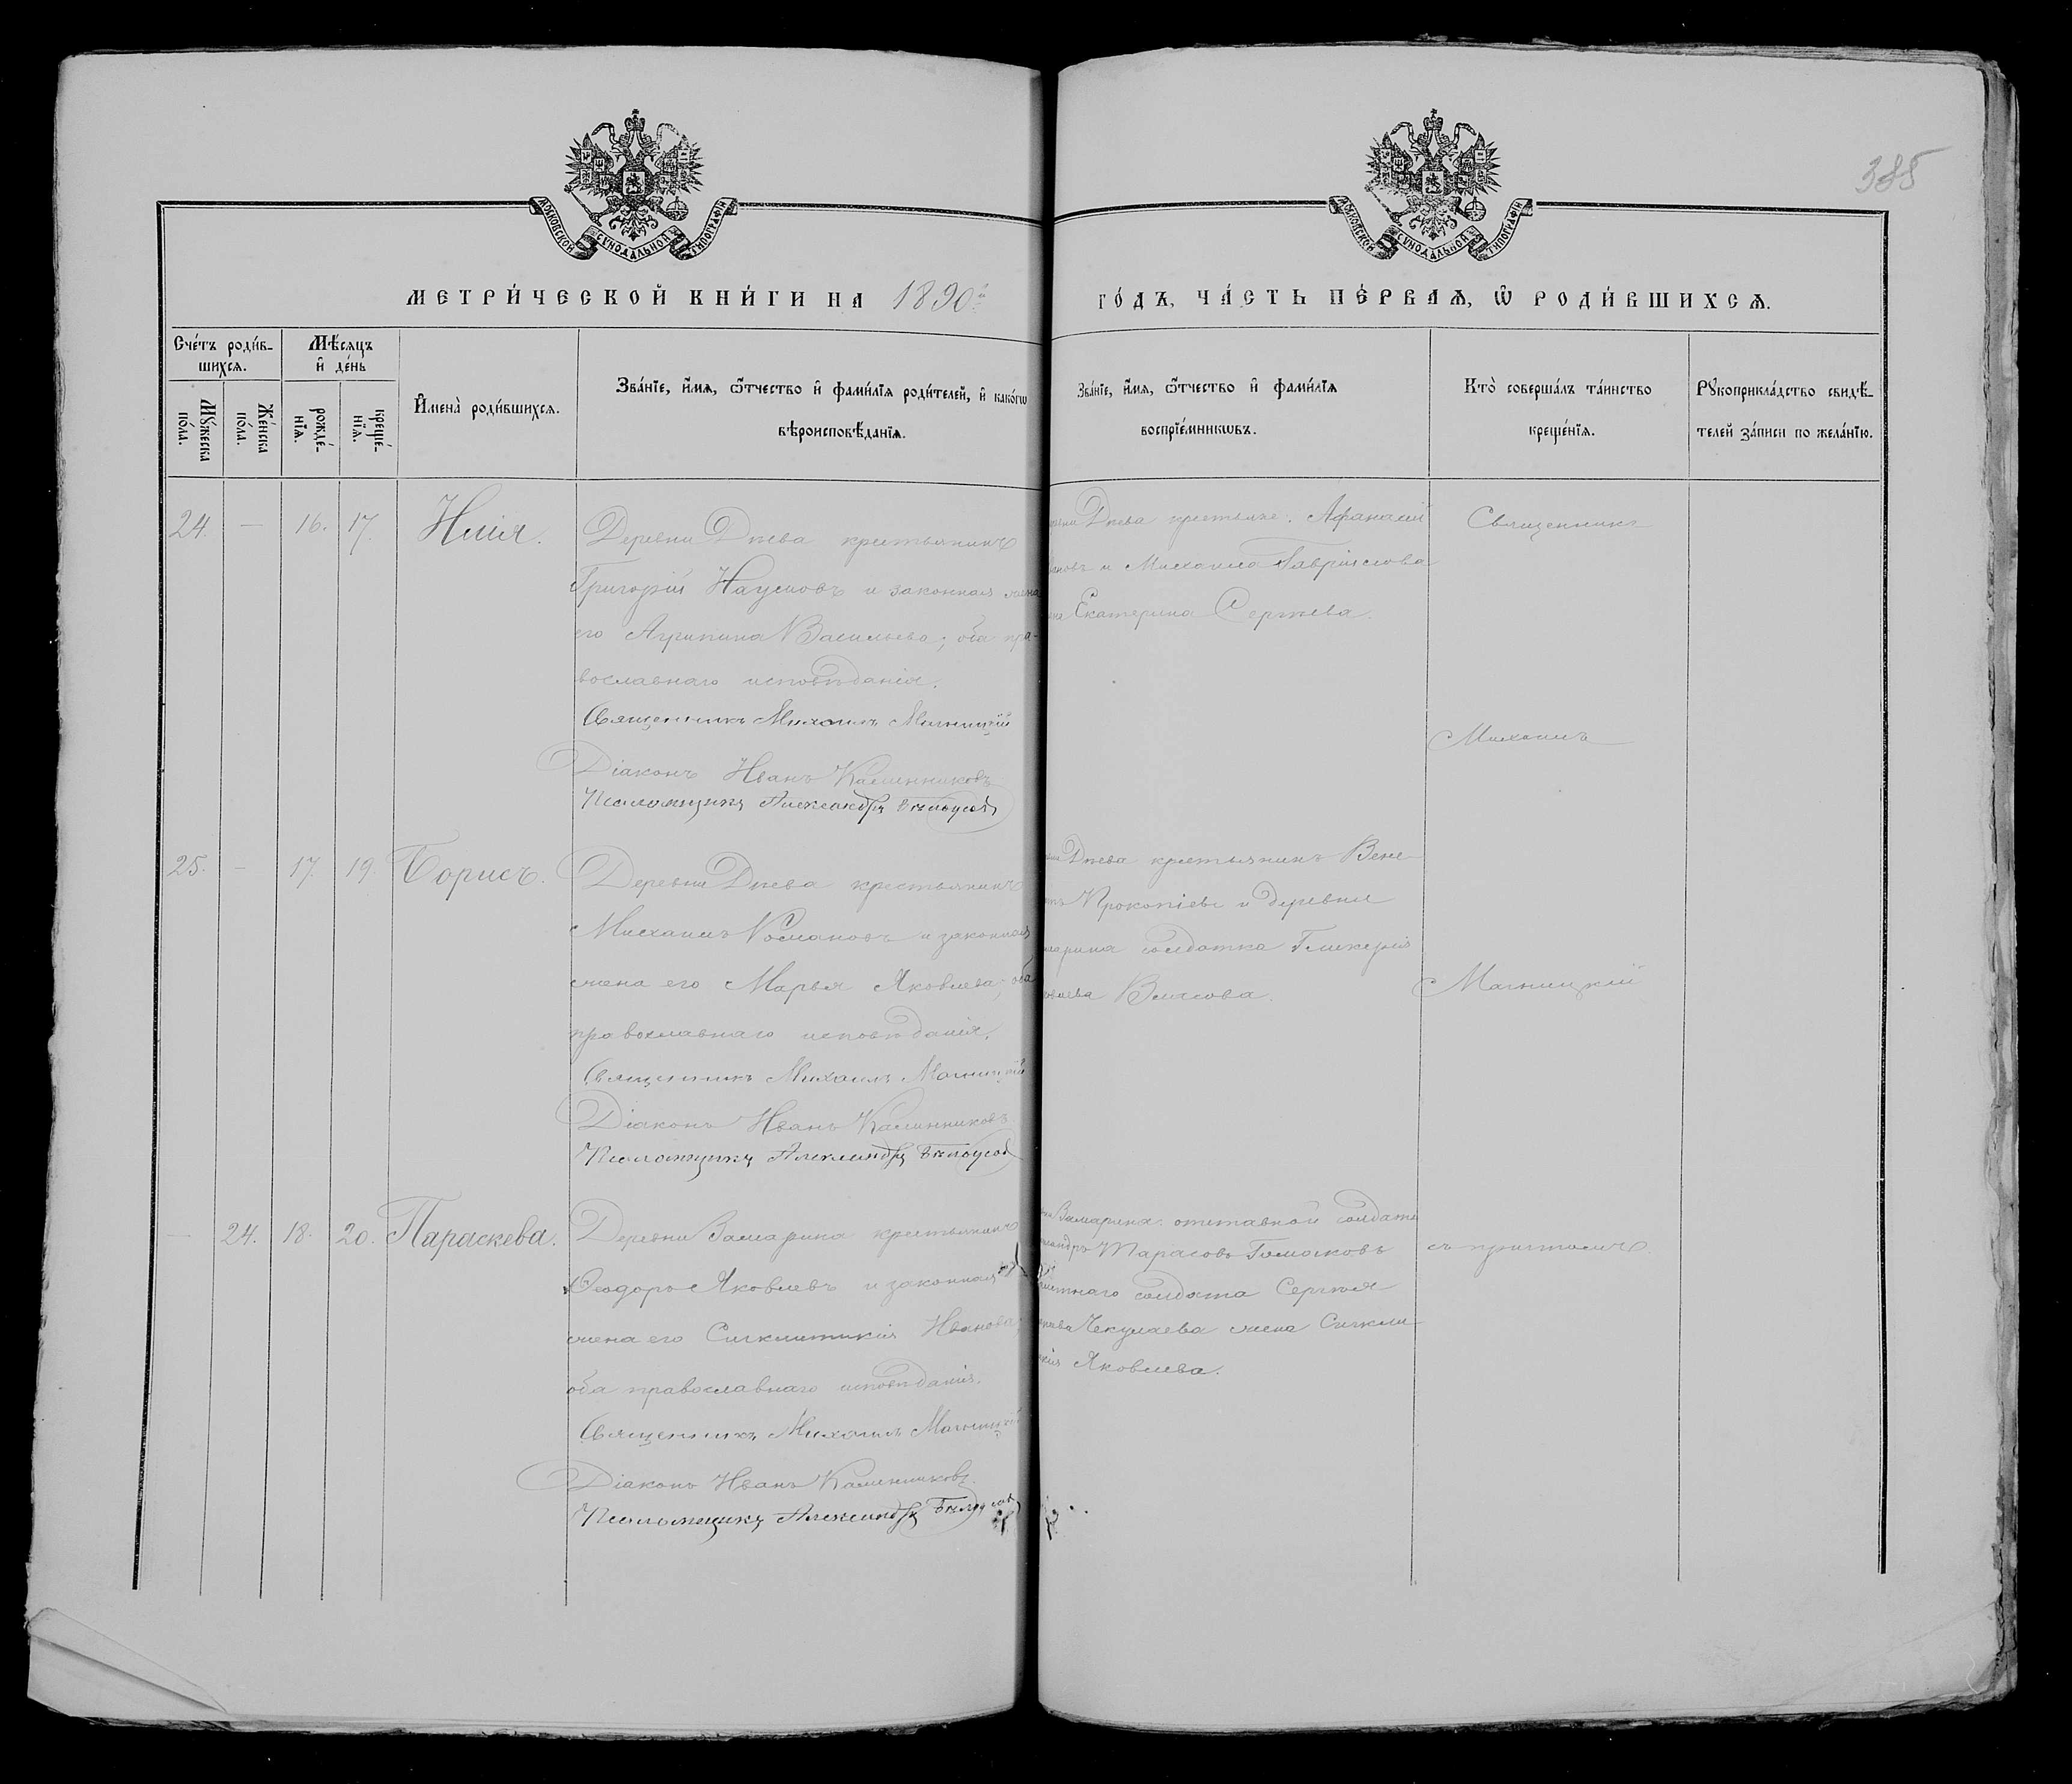 385
МОСКОВСКОЙ СѴНОДАЛЬНОЙ ТИПОГРАФІИ
МОСКОВСКОЙ СѴНОДАЛЬНОЙ ТИПОГРАФІИ
МЕТРИ́ЧЕСКОЙ КНИ́ГИ НА 1890й
ГО́ДЪ, ЧА́СТЬ ПЕ́РВАѦ, Ѡ РОДИ́ВШИХСѦ.
Сче́тъ роди́в-
шихсѧ.
Мѣ́сѧцъ
и҆ де́нь
Мꙋ́жеска
по́ла.
Же́нска
по́ла.
рожде́-
нїѧ.
креще́-
нїѧ.
И҆мена̀ роди́вшихсѧ.
Зва́нїе, и҆́мѧ, ѻ҆́тчество и҆ фами́лїѧ роди́телей, и҆ како́гѡ
вѣроисповѣ́данїѧ.
Зва́нїе, и҆́мѧ, ѻ҆́тчество и҆ фами́лїѧ
воспрїе́мникѡвъ.
Кто̀ соверша́лъ та́инство
креще́нїѧ.
Рꙋкоприкла́дство свидѣ́-
телей за́писи по жела́нїю.
24. — 16. 17. Илія.
Деревни Днева крестьянинъ
Григорій Наумовъ и законная жена
его Агрипина Васильева; оба пра-
вославнаго исповѣданія.
Священникъ Михаилъ Магницкій
Діаконъ Иванъ Калинниковъ
Псаломщикъ Александръ Бѣлоусовъ
Днева крестьяне: Афанасій
и Михаила Гавріилова
Екатерина Сергѣева.
Священникъ
Михаилъ
25. — 17. 19. Борисъ.
Деревни Днева крестьянинъ
Михаилъ Космановъ и законная
жена его Марья Яковлева; оба
православнаго исповѣданія.
Священникъ Михаилъ Магницкій
Діаконъ Иванъ Калинниковъ
Псаломщикъ Александръ Бѣлоусовъ
Днева крестьянинъ Вене-
Прокопіевъ и деревни
солдатка Гликерія
Власова.
Магницкій
— 24. 18. 20. Параскева.
Деревни Замарина крестьянинъ
Ѳеодоръ Яковлевъ и законная
жена его Сигклитикія Иванова;
оба православнаго исповѣданія.
Священникъ Михаилъ Магницкій
Діаконъ Иванъ Калинниковъ
Псаломщикъ Александръ Бѣлоусовъ
Замарина: отставной солдатъ
Тарасовъ Голосковъ
солдата Сергѣя
Чекулаева жена Сигкли-
Яковлева.
съ причтомъ.